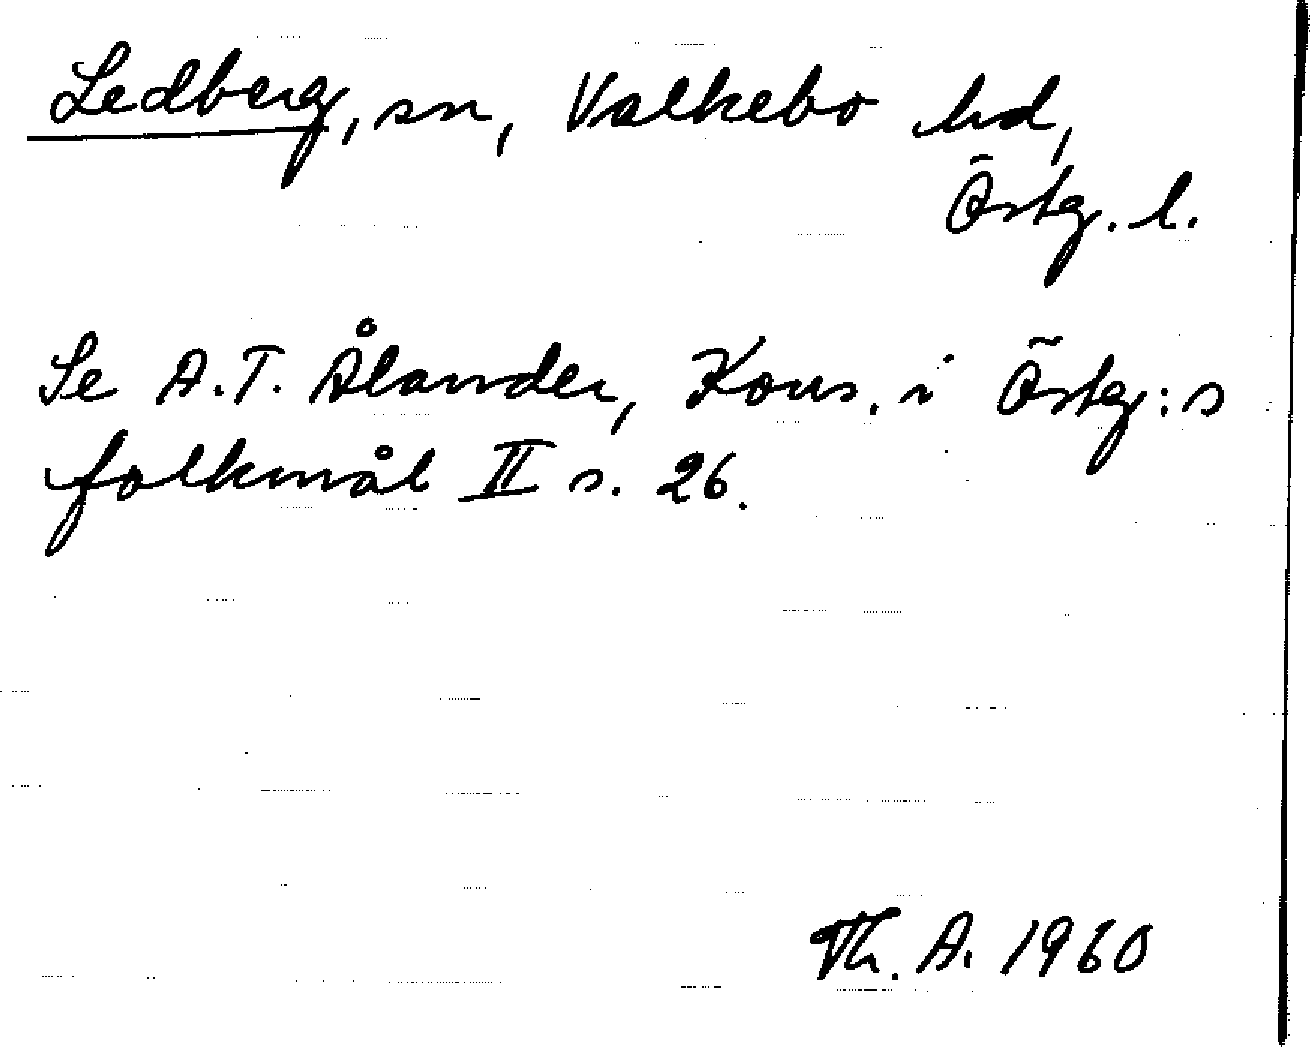 Ledberg, sn, Valkebo hd,
Östg. l.
Se A.T. Ålander, Kons. i Östg:s
folkmål II s. 26.
Th. A. 1960